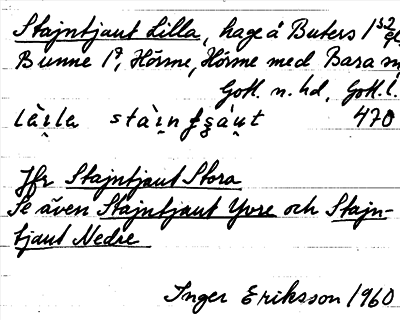 Stajntjaut Lilla, hage å Buters 1
Bunne 1ª, Hörme, Hörme med Bara m
Gotl. n. hd, Gotl. l.
470
Jfr Stajntjaut Stora
Se även Stajntjaut Yvre och Stajn-
tjaut Nedre
Inger Eriksson 1960